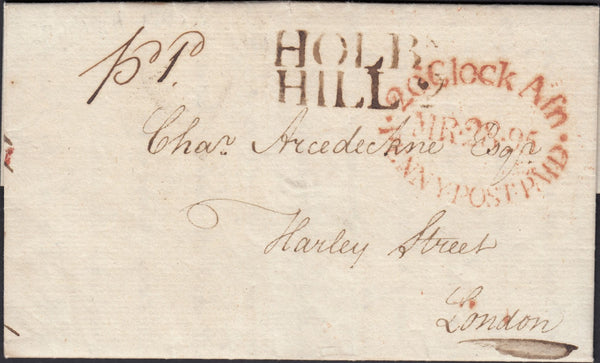 pp
HOLB
HILL
2 o'Clock Afn
MR·28·95
NNY·POST·PAID
Char. Arcedeckne Esqr
Harley Street
London